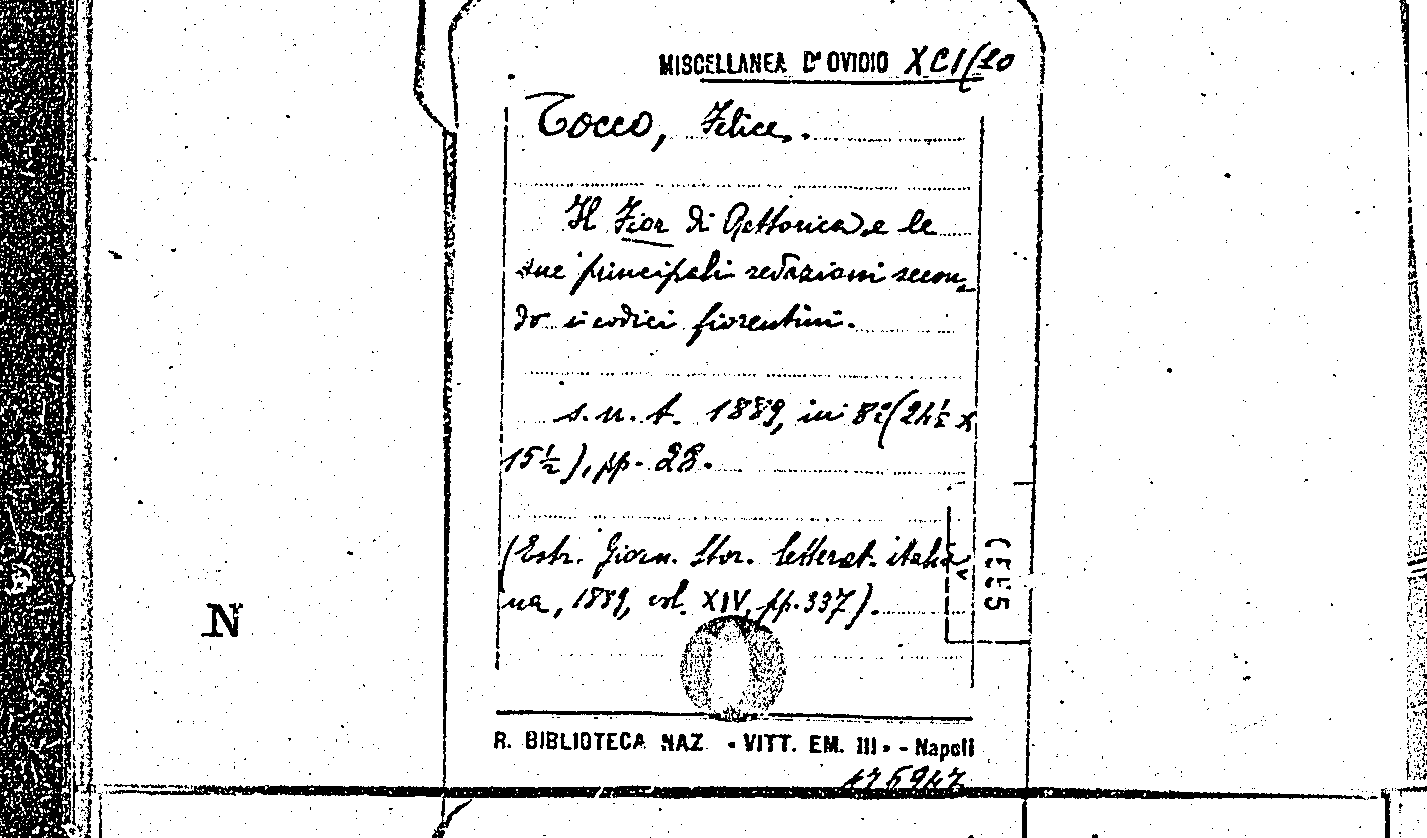 MISCELLANEA D'OVIDIO XCI/20
Tocco, Felice.
Il Fior di Rettorica e le
sue principali redazioni secon-
do i codici fiorentini.
s. n. t. 1889, in 8º (24½ x
15½), pp. 28.
(Estr. Giorn. Stor. letterat. italia
na, 1889, vol. XIV, pp. 337).
N
R. BIBLIOTECA NAZ. «VITT. EM. III» - Napoli